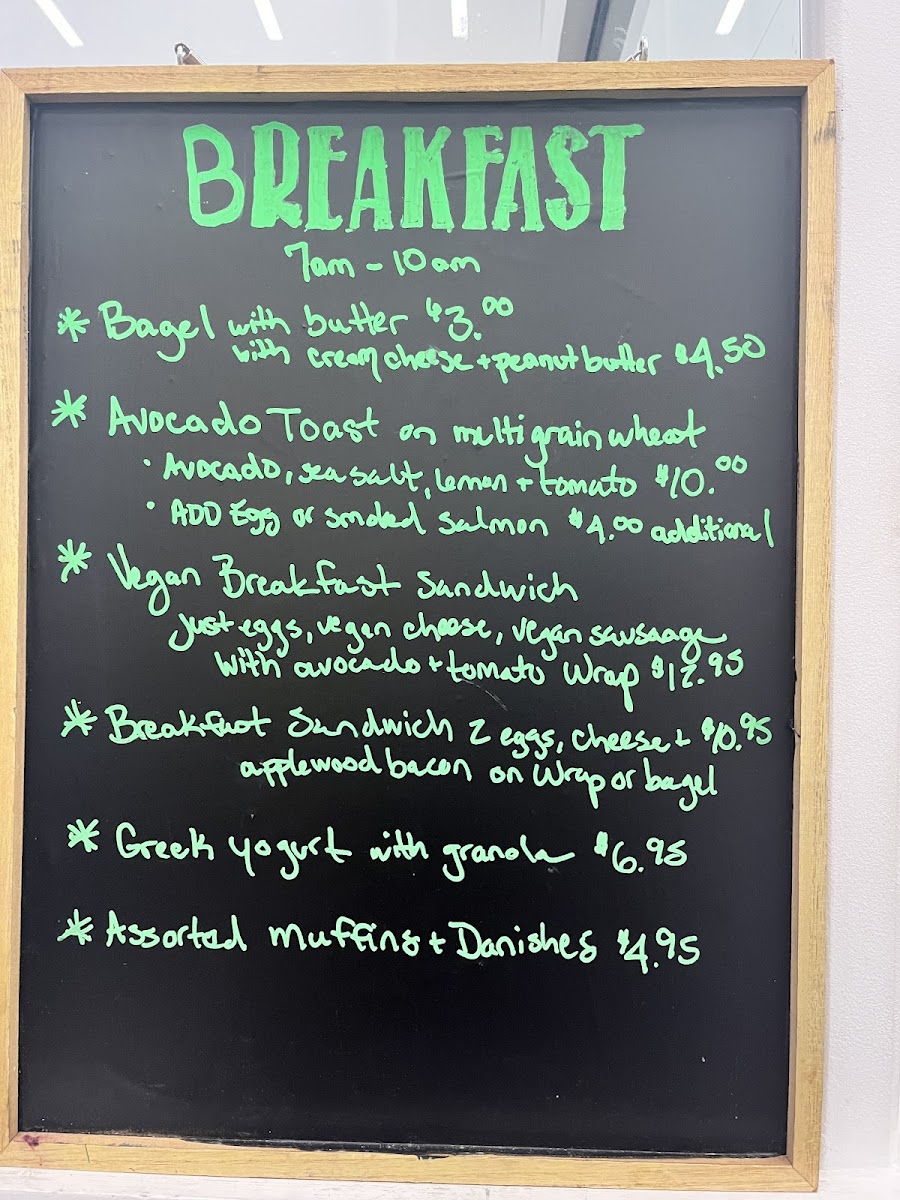 BREAKFAST
7am - 10am
* Bagel with butter $3.00
with cream cheese + peanut butter $4.50
* Avocado Toast on multigrain wheat
· Avocado, sea salt, lemon + tomato $10.00
· ADD Egg or smoked salmon $4.00 additional
* Vegan Breakfast Sandwich
Just eggs, vegan cheese, vegan sausaage
with avocado + tomato Wrap $12.95
* Breakfast Sandwich 2 eggs, cheese + $10.95
applewood bacon on Wrap or bagel
* Greek yogurt with granola $6.95
* Assorted muffins + Danishes $4.95